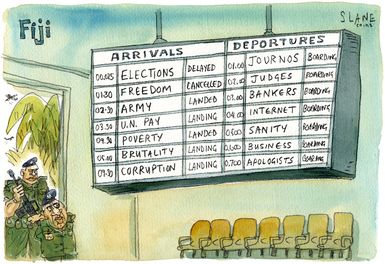 Fiji
SLANE
ARRIVALS DEPARTURES
ELECTIONS DELAYED 01.00 JOURNOS BOARDING
01:30 FREEDOM CANCELLED 02.00 JUDGES BOARDING
02:30 ARMY LANDED 03.00 BANKERS BOARDING
03.30 U.N. PAY LANDING 04.00 INTERNET BOARDING
POVERTY LANDED SANITY BOARDING
BRUTALITY LANDING BUSINESS BOARDING
CORRUPTION LANDING 0.700 APOLOGISTS BOARDING